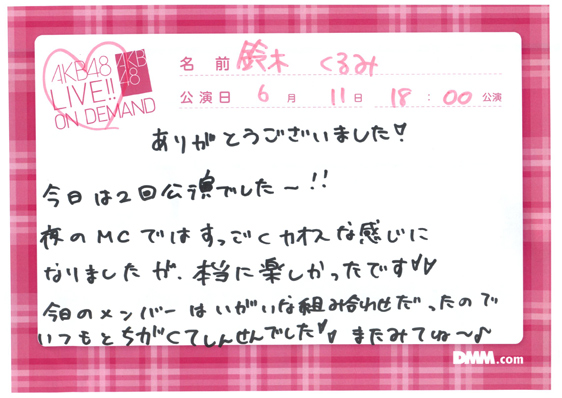 AKB48
LIVE!!
ON DEMAND
AKB
48
名 前 鈴木 くるみ
公演日 6 月 11 日 18 : 00 公演
ありがとうございました♡
今日は2回公演でした〜!!
夜のMCではすっごくカオスな感じに
なりましたが、本当に楽しかったです♡♡
今日のメンバーはいがいな組み合わせだったので
いつもとちがくてしんせんでした♡♡ またみてね〜♪
DMM.com